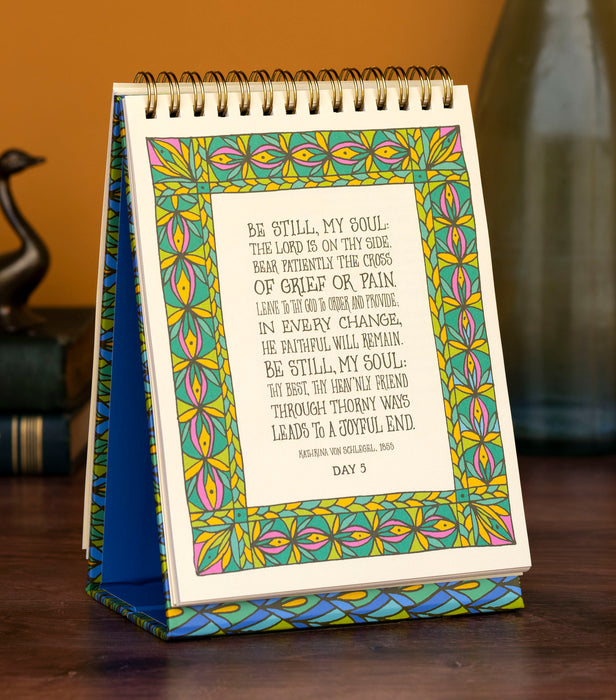 BE STILL, MY SOUL:
THE LORD IS ON THY SIDE.
BEAR PATIENTLY THE CROSS
OF GRIEF OR PAIN.
LEAVE TO THY GOD TO ORDER AND PROVIDE;
IN EVERY CHANGE,
HE FAITHFUL WILL REMAIN.
BE STILL, MY SOUL:
THY BEST, THY HEAV'NLY FRIEND
THROUGH THORNY WAYS
LEADS TO A JOYFUL END.
KATHRINA VON SCHLEGEL, 1855
DAY 5